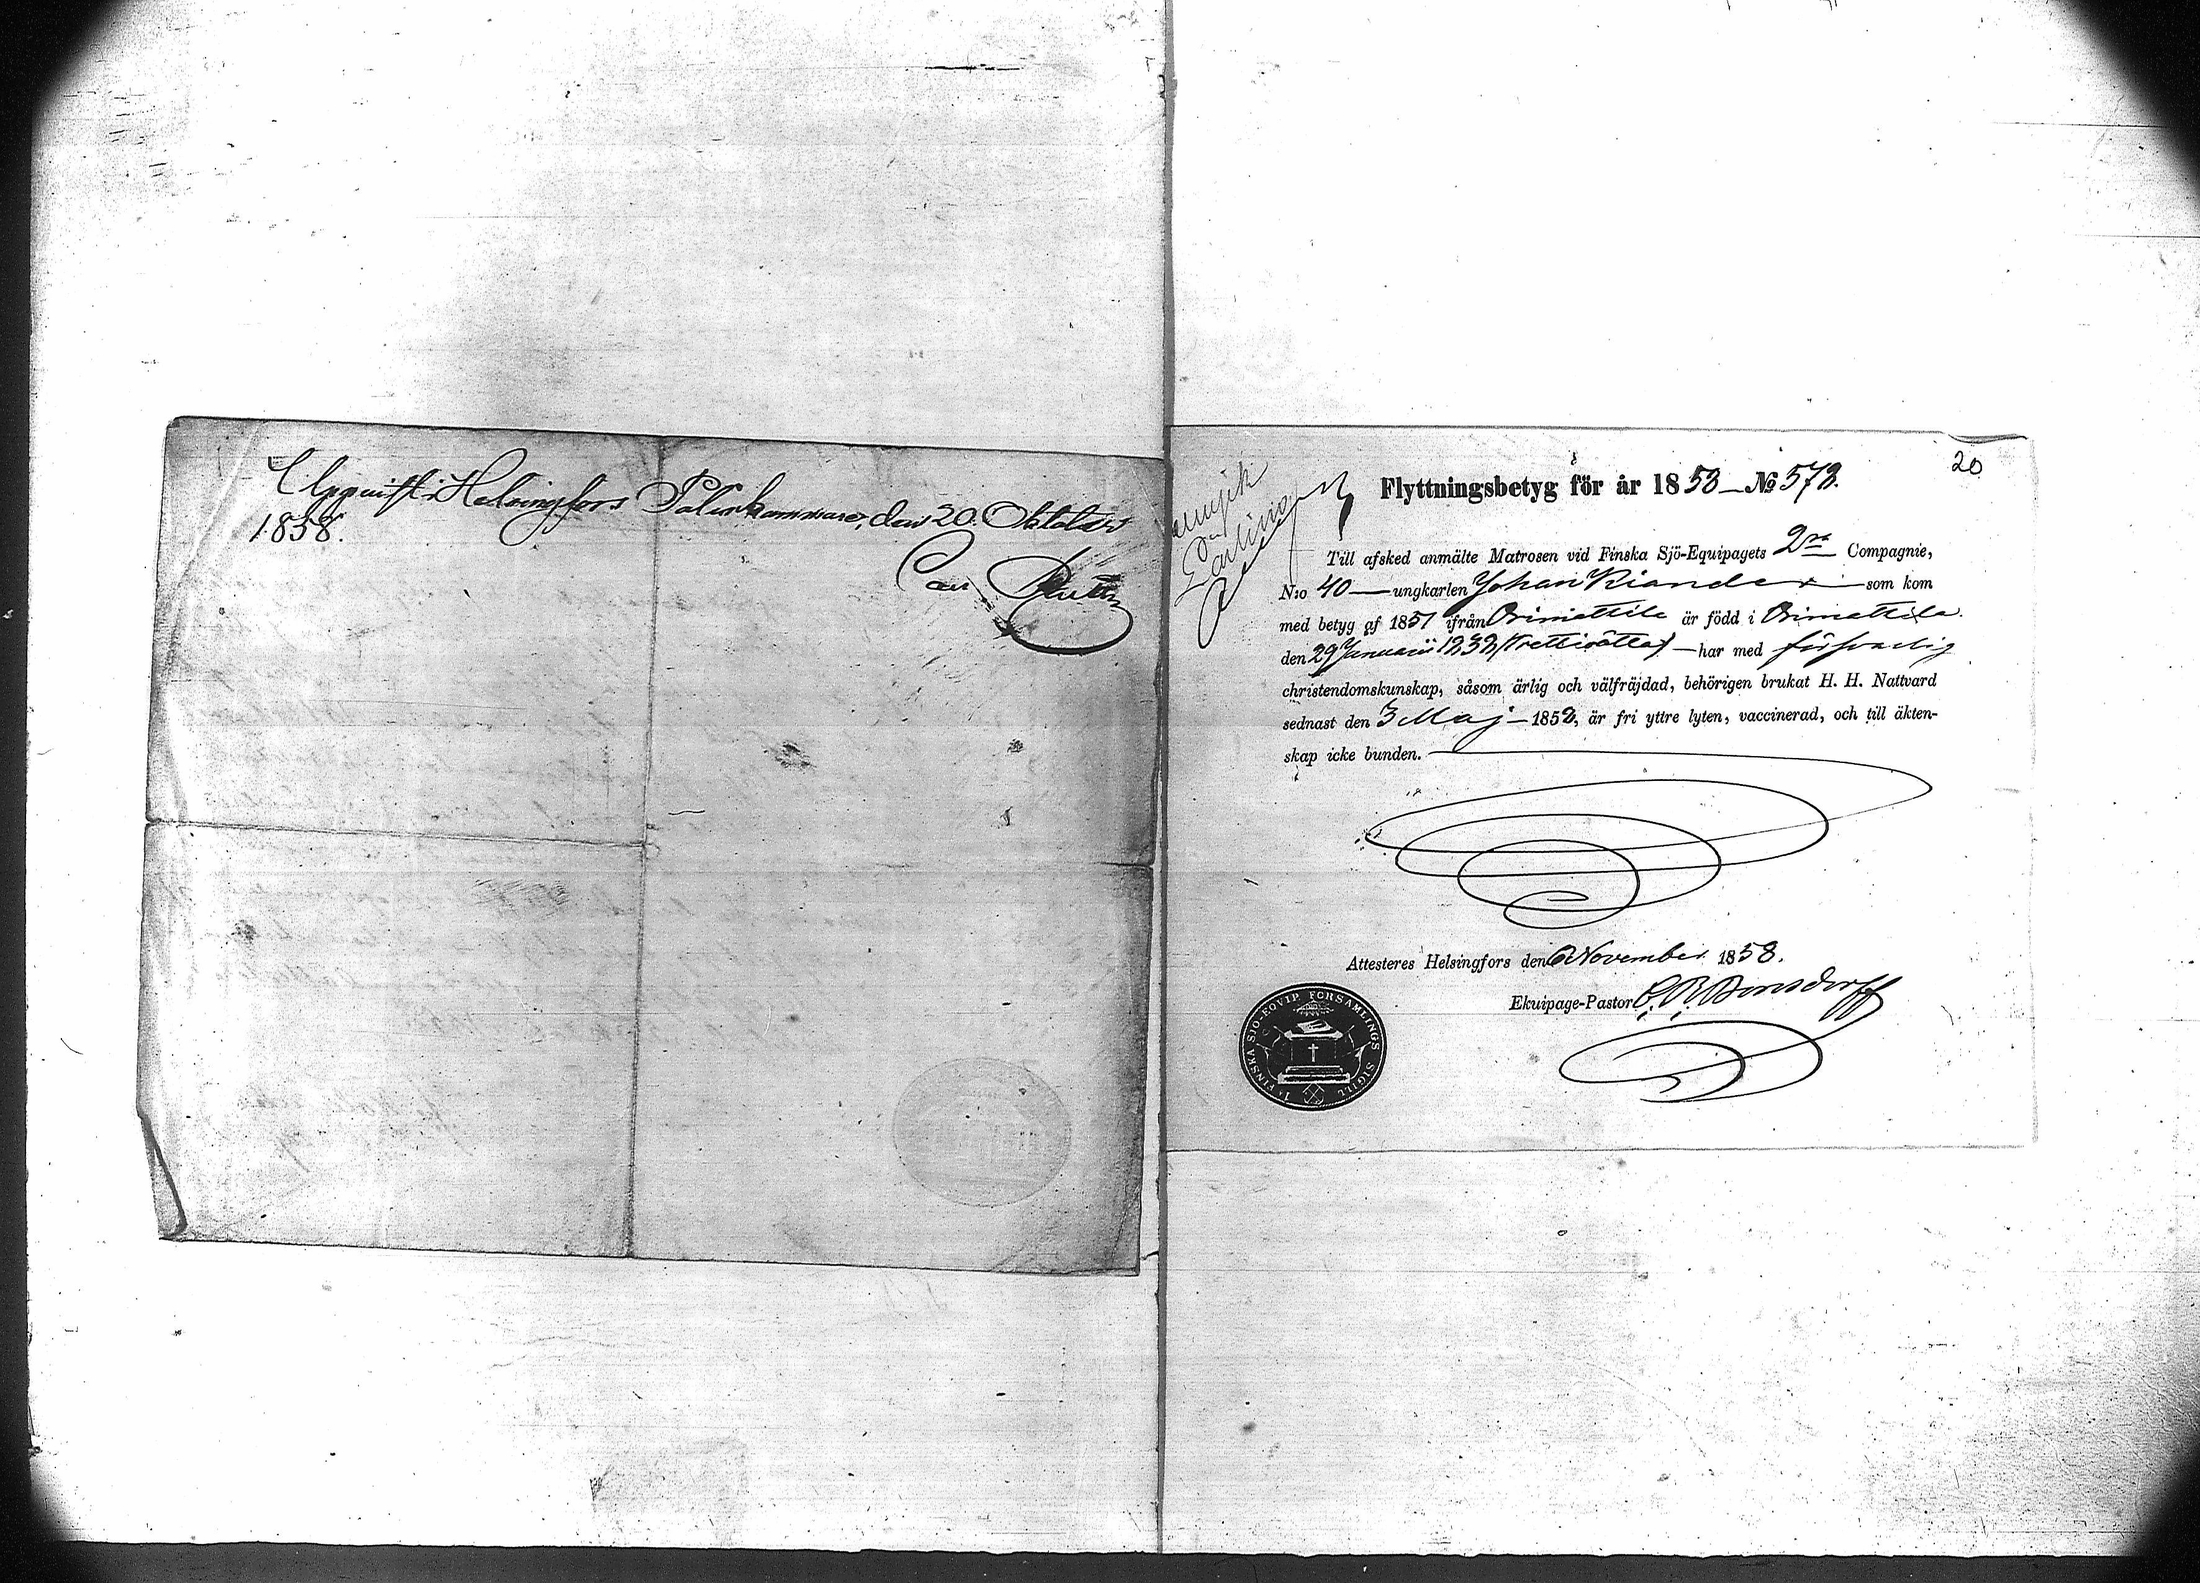 Uppvist i Helsingfors Poliskammare, den 20. Oktober
1858.
Carl
20
Flyttningsbetyg för år 1858 — № 578.
Till afsked anmälte Matrosen vid Finska Sjö-Equipagets 2ra Compagnie,
N:o 40 — ungkarlen Johan Riander — som kom
med betyg af 1857 ifrån Orimattila är född i Orimattila
den 29 Januarii 1838 (Trettioåtta) — har med försvarlig
christendomskunskap, såsom ärlig och välfräjdad, behörigen brukat H. H. Nattvard
sednast den 3 Maj — 1858, är fri yttre lyten, vaccinerad, och till äkten-
skap icke bunden.
Attesteres Helsingfors den 6 November 1858.
Ekuipage-Pastor C. R. Bonsdorff
1a FINSKA SJÖ-EQVIP. FÖRSAMLINGS SIGILL